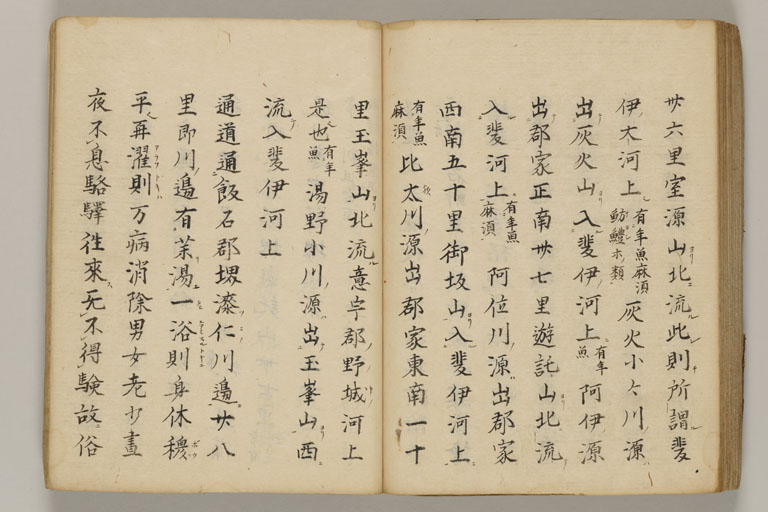 卅六里室源山北流此則所謂斐
伊大河上有年魚麻須魴鱧木類灰火小々川源
出灰火山入斐伊河上有年魚阿伊源
出郡家正南卅七里遊託山北流
入斐河上有年魚麻須阿位川源出郡家
西南五十里御坂山入斐伊河上
有年魚麻須比太川源出郡家東南一十
里玉峯山北流意宇郡野城河上
是也有年魚湯野小川源出玉峯山西
流入斐伊河上
通道通飯石郡堺漆仁川邊廿八
里即川邊有湯一浴則身休穆
平再濯則万病消除男女老少晝
夜不息駱驛往來无不得験故俗